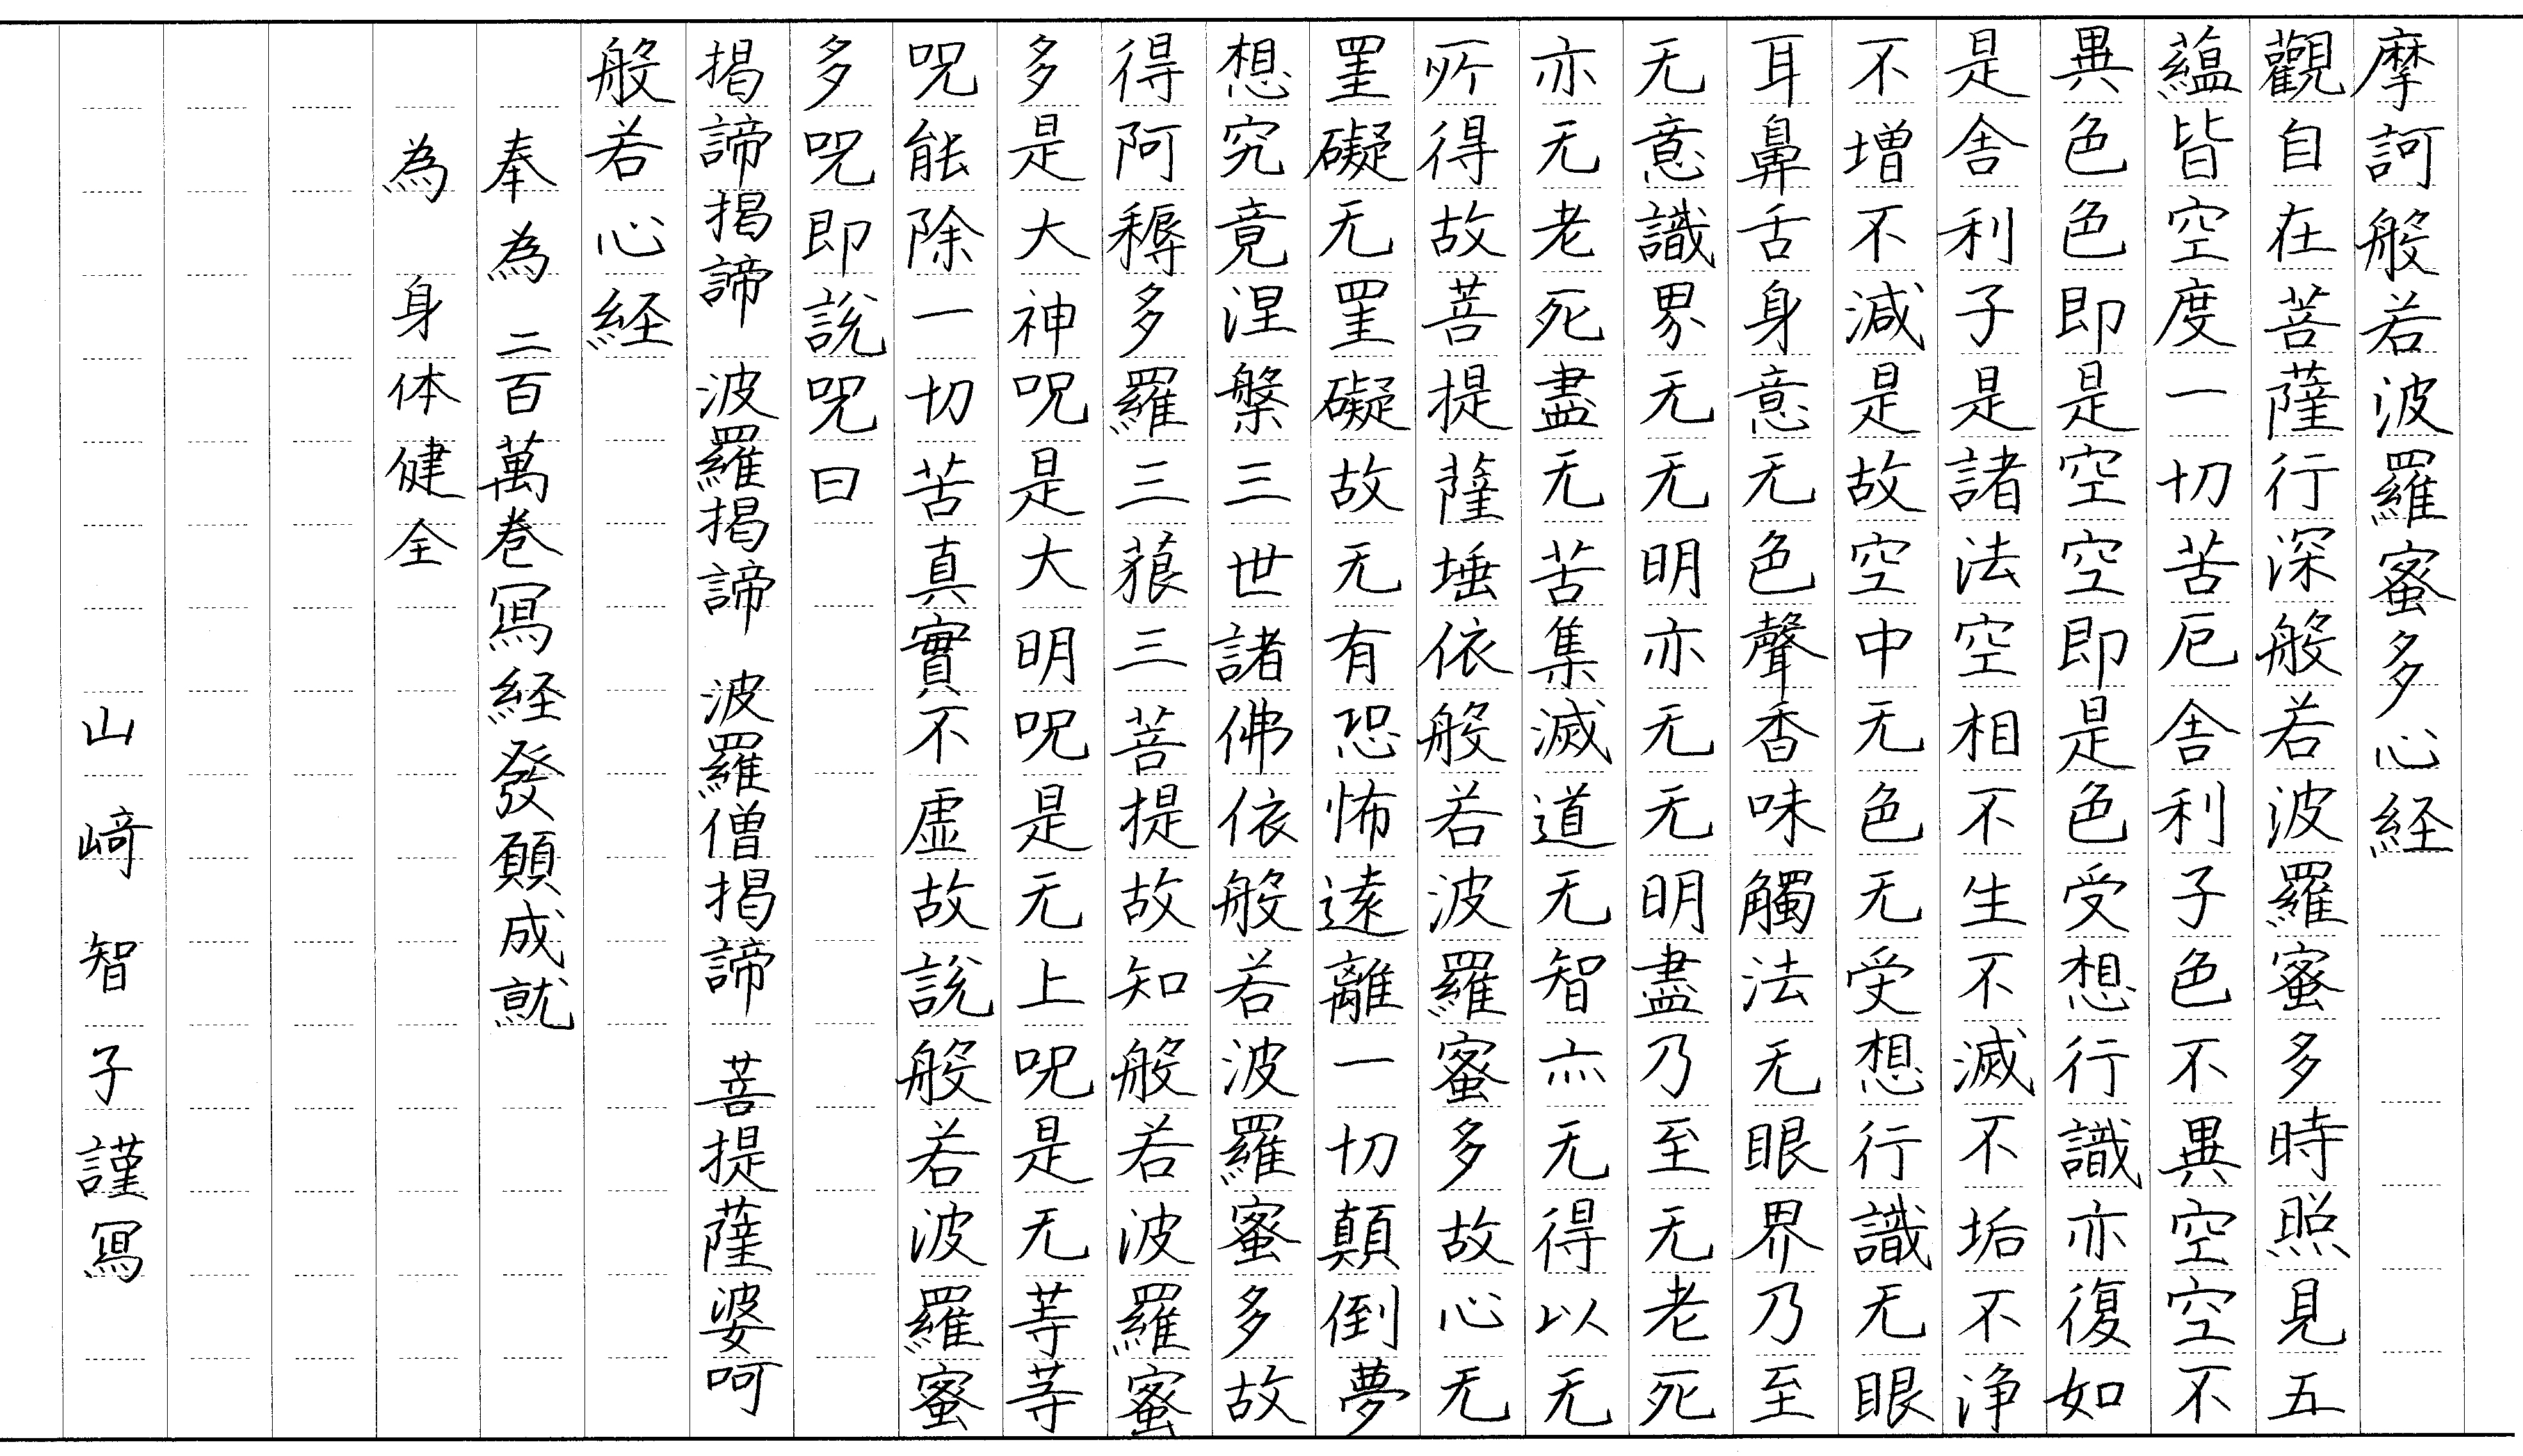 摩訶般若波羅蜜多心経
觀自在菩薩行深般若波羅蜜多時照見五
蘊皆空度一切苦厄舎利子色不異空空不
異色色即是空空即是色受想行識亦復如
是舎利子是諸法空相不生不滅不垢不浄
不増不減是故空中无色无受想行識无眼
耳鼻舌身意无色聲香味觸法无眼界乃至
无意識界无无明亦无无明盡乃至无老死
亦无老死盡无苦集滅道无智亦无得以无
所得故菩提薩埵依般若波羅蜜多故心无
罣礙无罣礙故无有恐怖遠離一切顛倒夢
想究竟涅槃三世諸佛依般若波羅蜜多故
得阿耨多羅三藐三菩提故知般若波羅蜜
多是大神呪是大明呪是无上呪是无等等
呪能除一切苦真實不虚故説般若波羅蜜
多呪即説呪曰
揭諦揭諦 波羅揭諦 波羅僧揭諦 菩提薩婆呵
般若心経
奉為 二百萬巻冩経發願成就
為 身体健全
山﨑智子謹冩